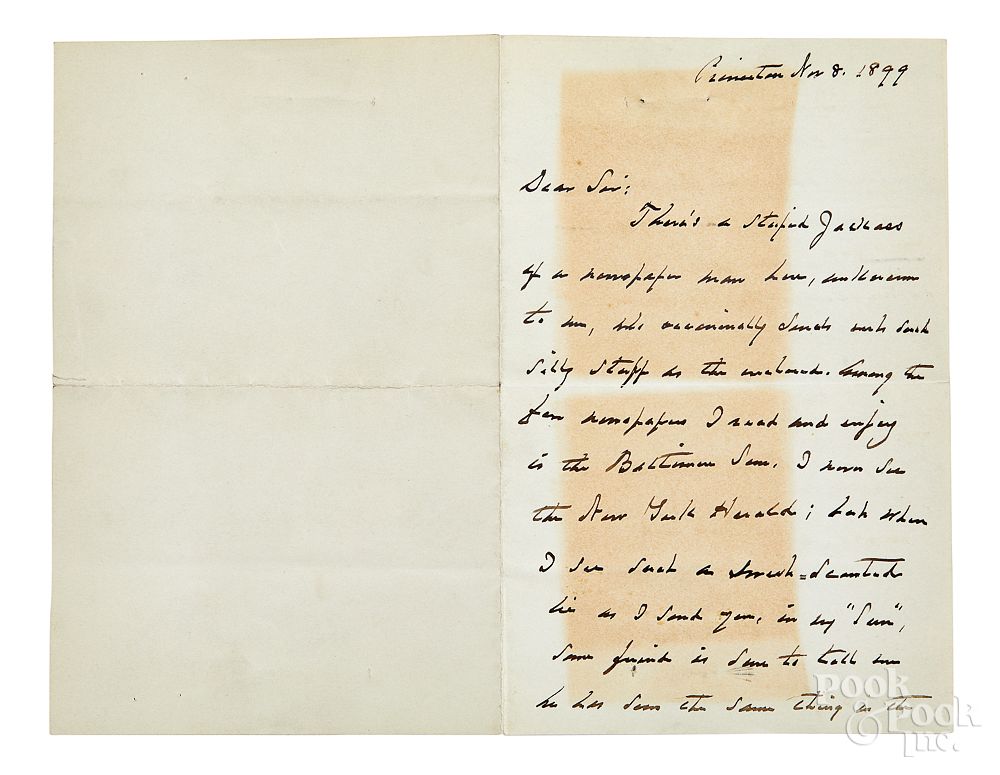 Princeton Nov 8. 1899
Dear Sir:
There's a stupid Jackass
of a newspaper man here, unknown
to me, who occasionally sends out such
silly stuff as the enclosed. Among the
few newspapers I read and enjoy
is the Baltimore Sun. I never see
the New York Herald; but when
I see such a -scented
lie as I send you, in my "Sun",
some friend is sure to tell me
he has seen the same thing in the
Pook
& Pook
Inc.